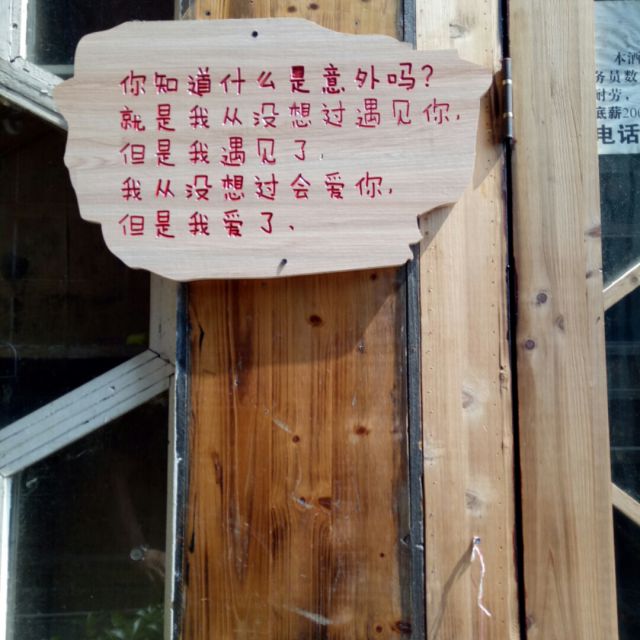 你知道什么是意外吗?
就是我从没想过遇见你,
但是我遇见了.
我从没想过会爱你,
但是我爱了、
本酒
务员数
耐劳,
底薪200
电话